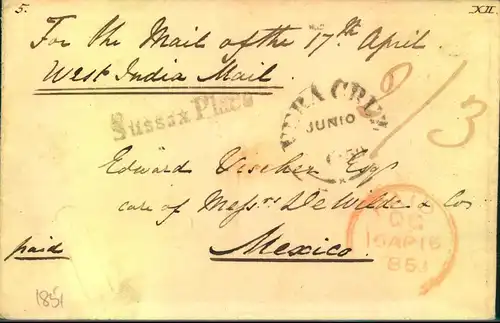 5.
XII.
For the Mail of the 17th April
West India Mail.
Sussex Place
VERA CRUZ
JUNIO
2/3
Edward Vischer Esqr
care of Messrs De Wilde & Co
Mexico.
paid
PAID
16AP16
1851
1851